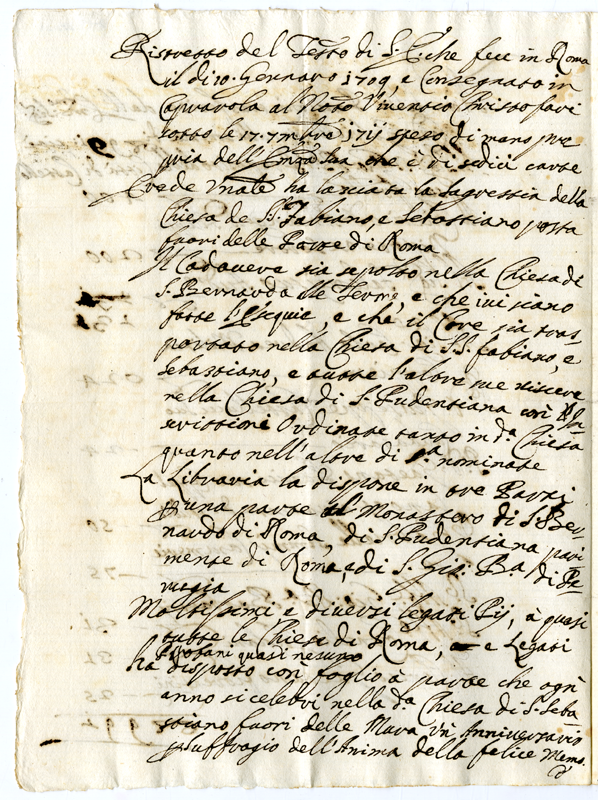 Ristretto del Testo di S. E. che fece in Roma
il di 10. Gennaro 1709, e Consegnato in
Caprarola al Noto Vincenzio Christofari
sotto le 17. 7mbre 1711 scritto di mano pro
pria dell'Emza Sua che è di sedici carte
Erede Unale ha lasciata la Sagrestia della
Chiesa de SS. Fabiano, e Sebastiano posta
fuori delle Porte di Roma
Il Cadavere sia seposto nella Chiesa di
S. Bernardo alle Terme, e che ivi siano
fatte l'Esequie, e che il Core sia tras
portato nella Chiesa di S.S. fabiano, e
Sebastiano, e tutte l'altre sue viscere
nella Chiesa di S. Pudentiana con In
scrittioni Ordinate tanto in da Chiesa
quanto nell'altre di sa. nominate
La Libraria la dispone in tre Parti
p una parte al Monastero di S. Ber
nardo di Roma, di S. Pudentiana pari
mente di Roma, e di S. Gio. Ba. di Pe
rugia
Moltissimi e diversi legati Pij, à quasi
tutte le Chiese di Roma, e Legati
Profani quasi nesuno
ha disposto con foglio à parte che ogni
anno si celebri nella da Chiesa di S. Seba
stiano fuori delle Mura un Anniversario
p Suffragio dell'Anima della felice Memo.